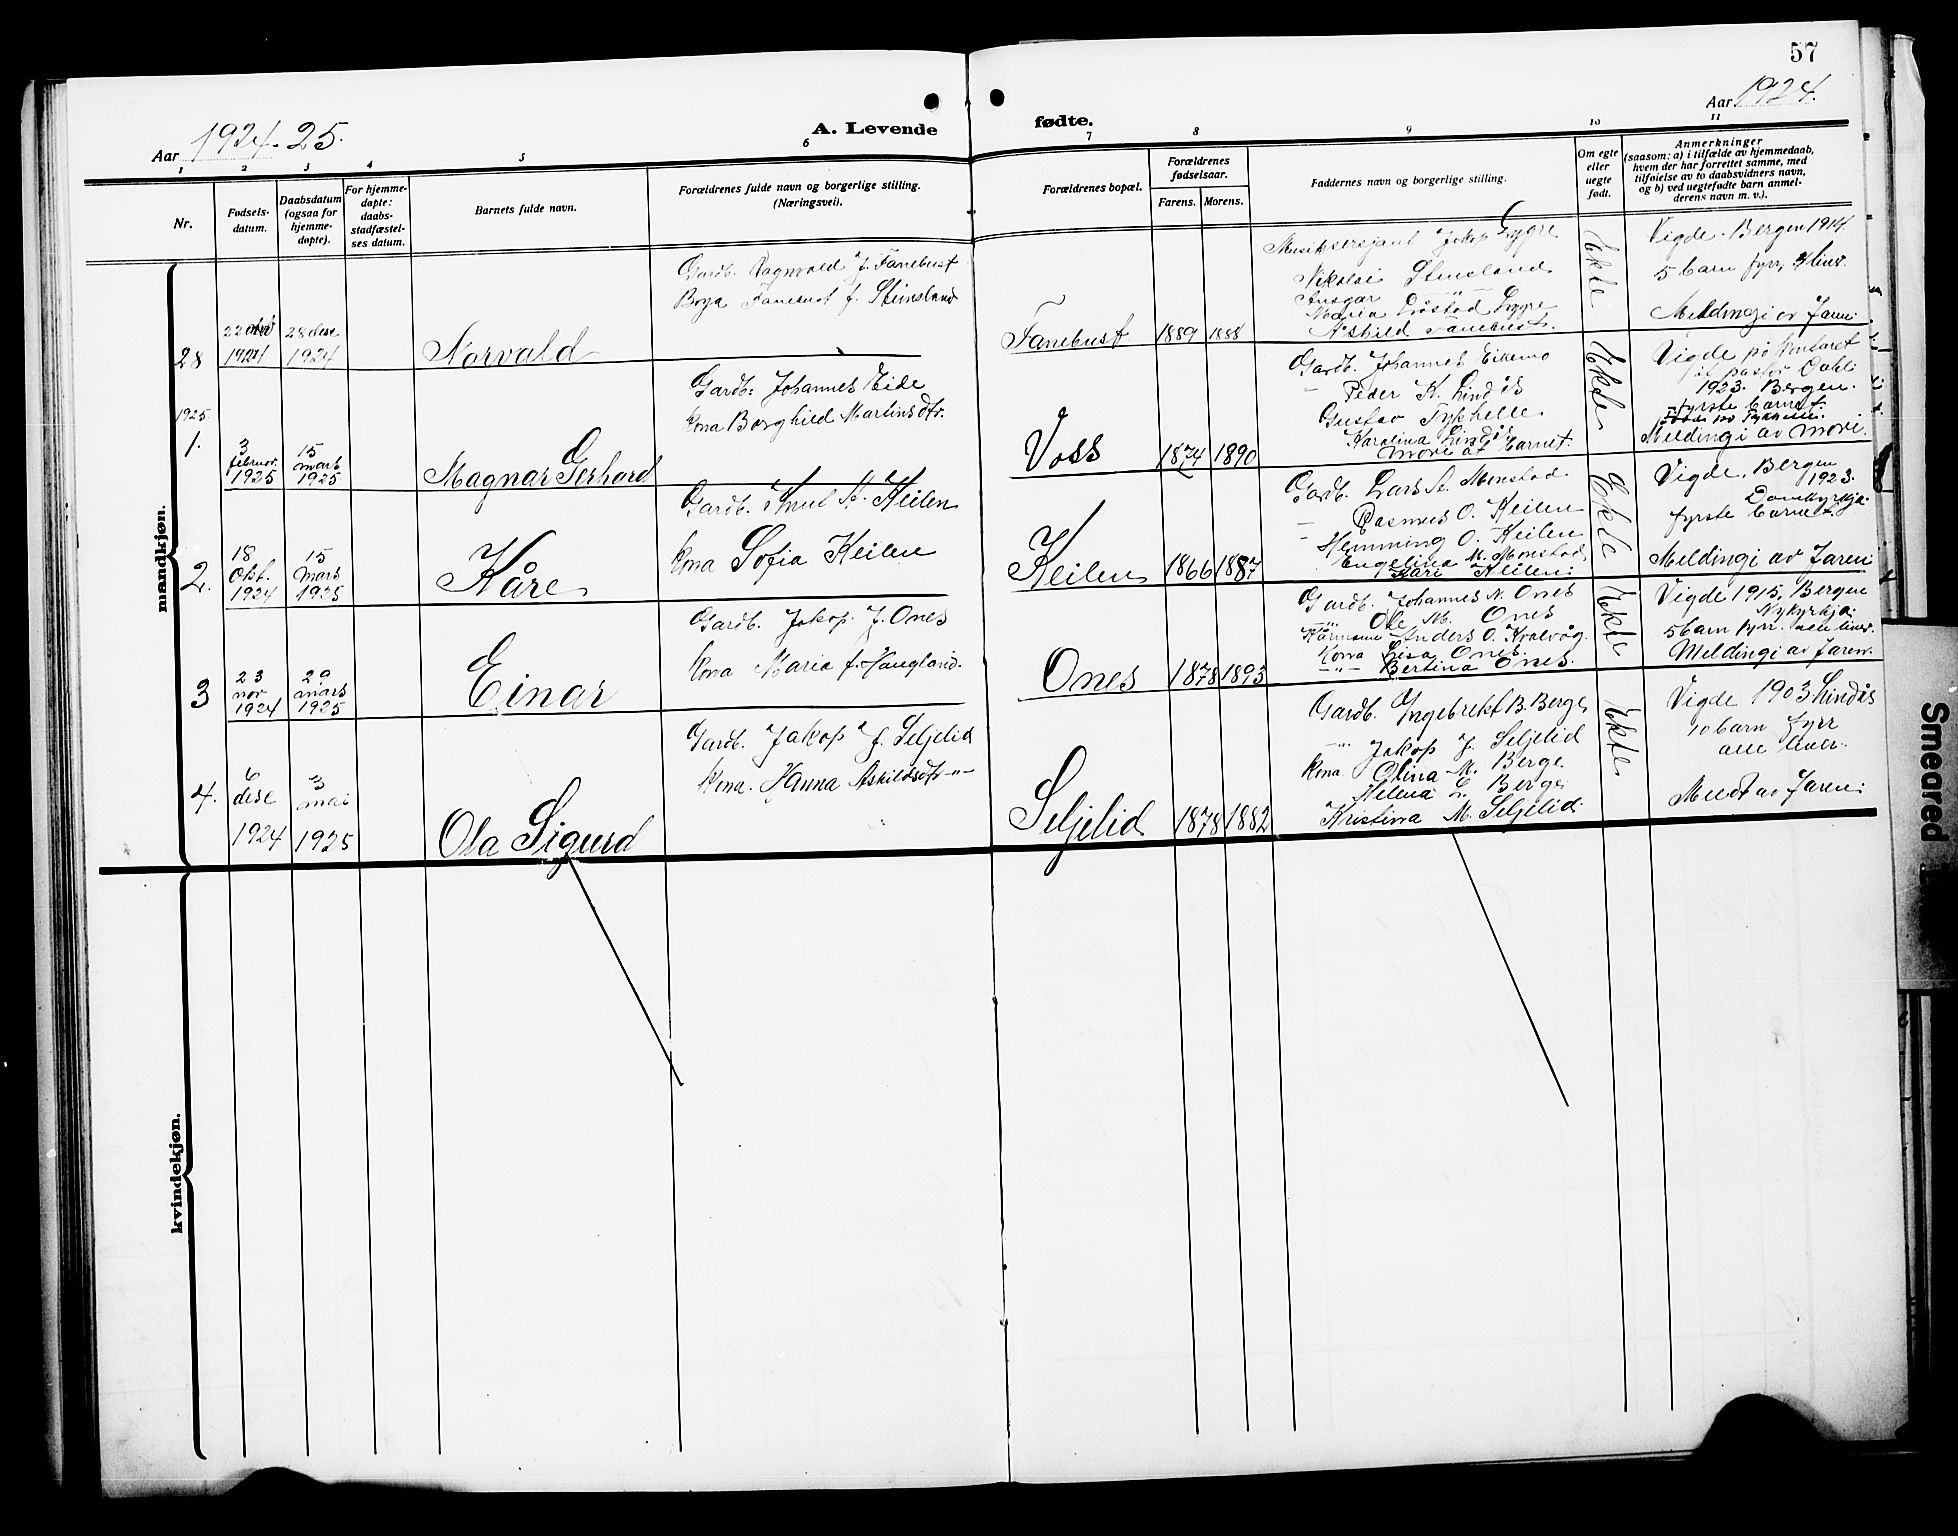 57
Aar 1924-25.
A. Levende
fødte.
Aar 1924.
1 2 3 4 5 6 7 8 9 10 11
Nr.
Fødsels-
datum.
Daabsdatum
(ogsaa for
hjemme-
døpte).
For hjemme-
døpte:
daabs-
stadfæstel-
ses datum.
Barnets fulde navn.
Forældrenes fulde navn og borgerlige stilling.
(Næringsvei).
Forældrenes bopæl.
Forældrenes
fødselsaar.
Farens. Morens.
Faddernes navn og borgerlige stilling.
Om egte
eller
uegte
født.
Anmerkninger
(saasom: a) i tilfælde av hjemmedaab,
hvem der har forrettet samme, med
tilføielse av to daabsvidners navn,
og b) ved uegtefødte barn anmel-
derens navn m. v.).
mandkjøn.
28
22
1924
28 dese
1924
Norvald
Gardb. Ragnvald J. Fanebust
Borga Fanebust f. Steinsland
Fanebust
1889 1888
Musiksersjant Jakop Lygre
Nikolai Steinsland
Ansgar
Maria Lygre
Åshild Fanebust.
Ekte
Vigde. Bergen 1914
5 barn fyrr, 4 liver.
Meldingi av faren.
1925
1.
3
februar.
1925
15
mars
1925
Magnar Gerhard
Gardb: Johannes Eide
kona Borghild Martinsdtr.
Voss
1874 1890
Gardb. Johannes Eikemo
" Peder K. Lindås
Gustav Tykhelle
Karolina Lindås
Mori at barnet.
Ekte
Vigde på
av pastor Dahl
1923. Bergen.
fyrste barnet.
Meldingi av mori.
2.
18
Okt.
1924
15
Mars
1925
Kåre
Gardb. Knut A. Keilen
kona Sofia Keilen
Keilen
1866 1887
Gardb. Lars A. Monstad
" Rasmus O. Keilen
" Hemming O. Keilen
Engelina M. Monstad
Kari Keilen.
Ekte
Vigde. Bergen
1923.
Domkyrkja.
fyrste barnet.
Meldingi av faren
3
23
nov
1924
29
mars
1925
Einar
Gardb. Jakop J. Ones
kona Maria f. Haugland.
Ones
1878 1893
Gardb. Johannes N. Ones
-"- Ole M. Ones
Anders O. Kvalvåg.
Kona Lisa Ones.
-"- Bertina Ones.
Ekte
Vigde 1915, Bergen
Nykyrkja.
5 barn fyrr. alle liver.
Meldingi av faren.
4.
6
dese
1924
3
mai
1925
Ola Sigurd
Gardb. Jakop J. Seljelid
kona. Hanna Askildsdtr -"-
Seljelid
1878 1882
Gardb. Ingebrekt B. Berge
-"- Jakop J. Seljelid
kona Olina M. Berge
Helena L. Berge
Kristina M. Seljelid.
Ekte
Vigde 1903 Lindås
10 barn fyrr
alle liver.
Meldt av faren.
kvindekjøn.
Smeared